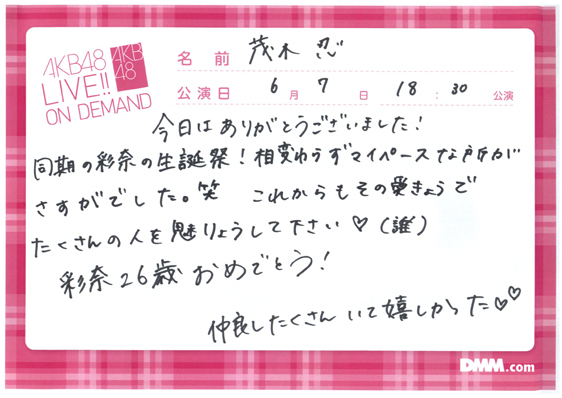 AKB48
LIVE!!
ON DEMAND
AKB
48
名前 茂木 忍
公演日 6月 7日 18:30 公演
今日はありがとうございました!
同期の彩奈の生誕祭!相変わらずマイペースな所が
さすがでした。笑 これからもその愛きょうで
たくさんの人を魅りょうして下さい♡(誰)
彩奈26歳おめでとう!
仲良したくさんいて嬉しかった♡♡
DMM.com